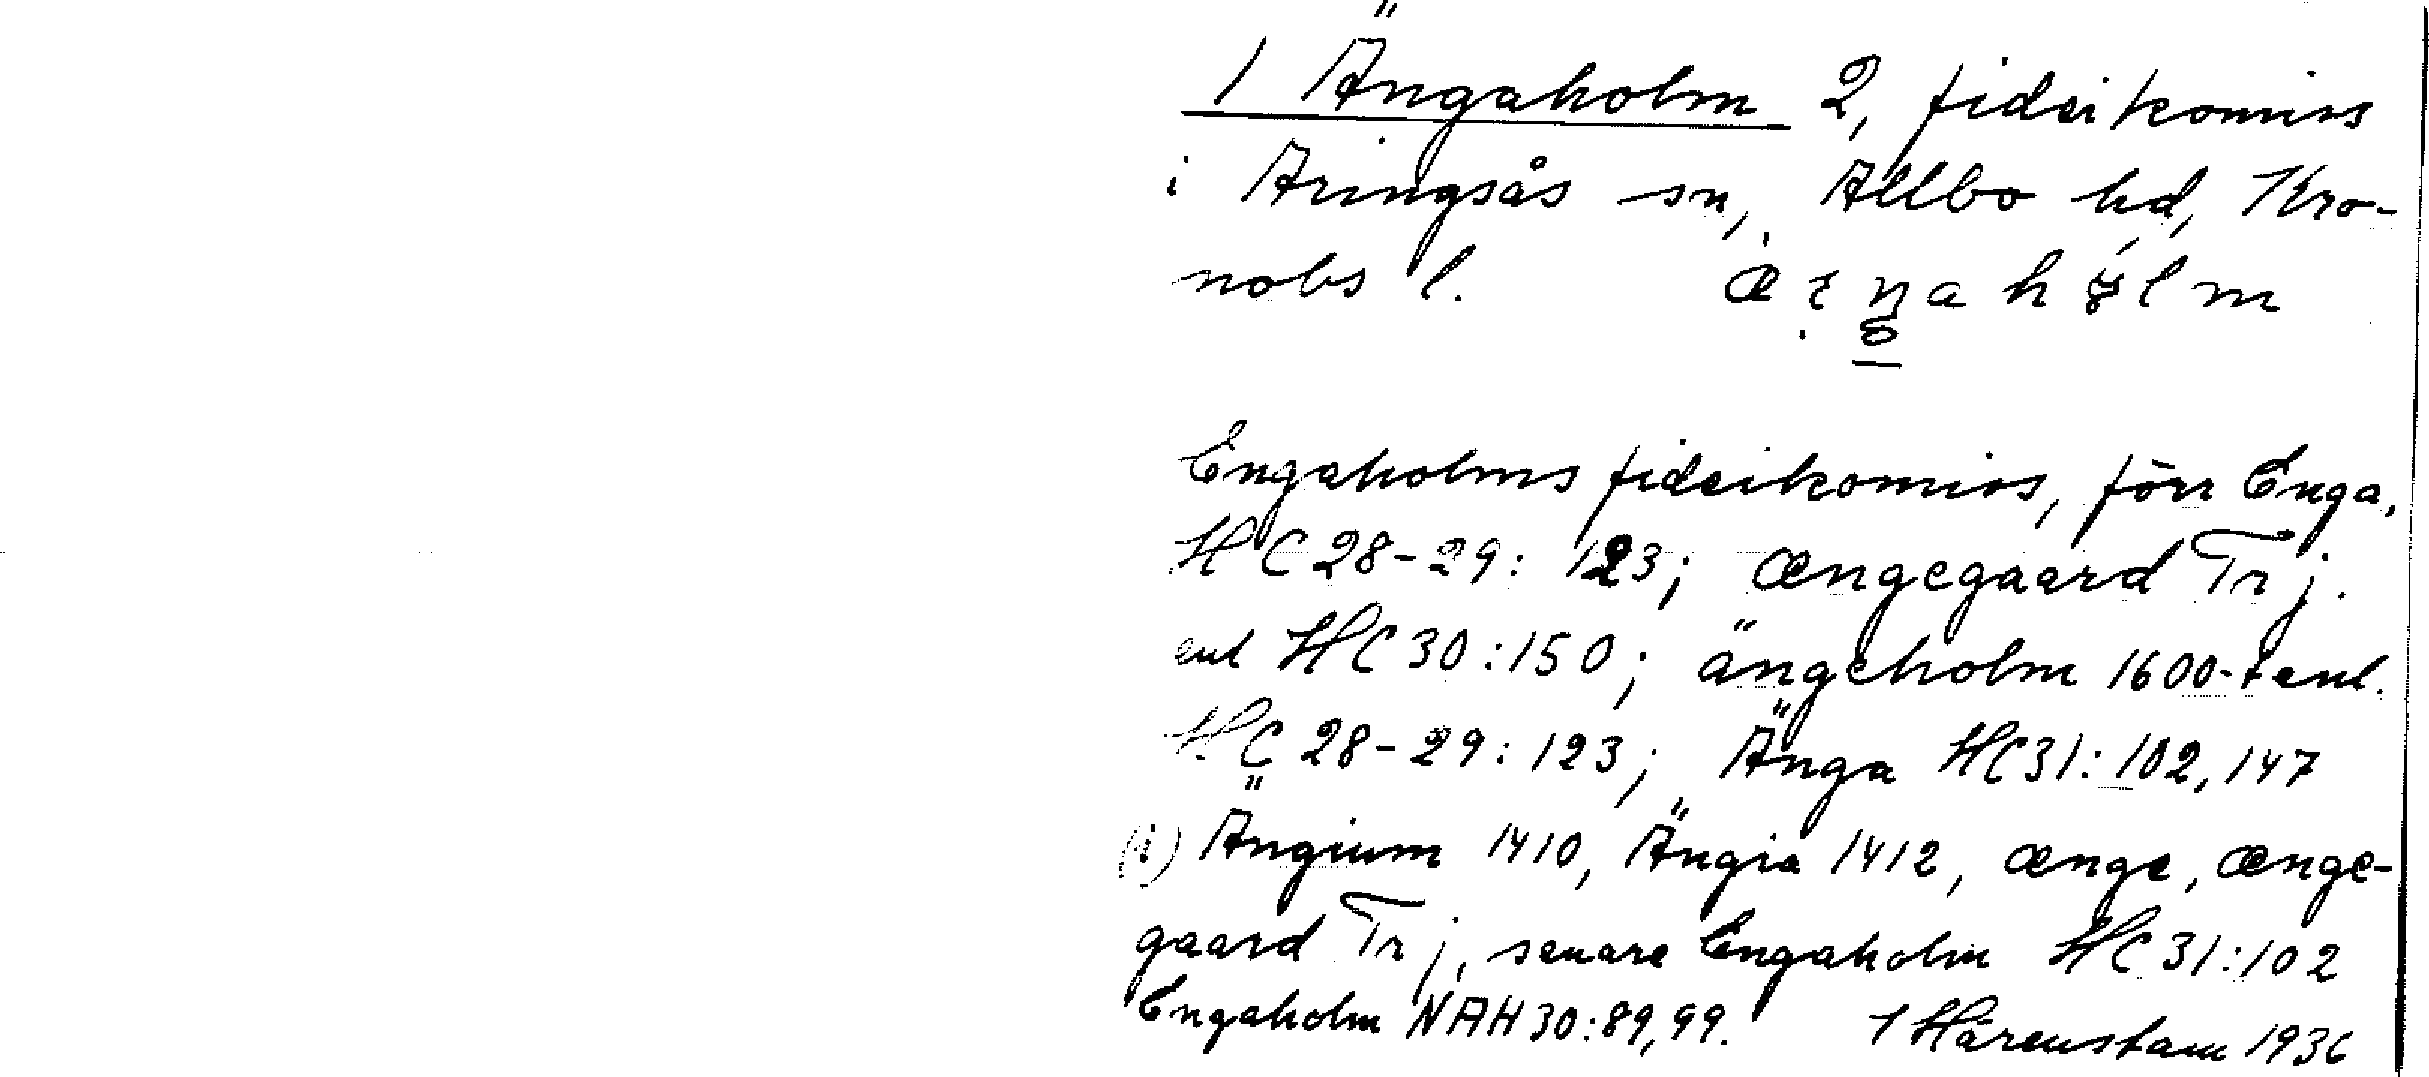 1 Ängaholm 2, fideikomiss
i Aringsås sn, Allbo hd, Kro-
nobs l.
Engaholms fideikomiss, förr Enga,
HC 28-29: 123; ængegaard Trj.
enl HC 30:150; ängeholm 1600-tenl.
HC 28-29: 123; Änga HC 31: 102, 147
(i) Ängium 1410, Ängia 1412, ænge, ænge-
gaard Trj, senare Engaholm HC 31:102
Engaholm NAH 30:89, 99. I Härenstam 1936